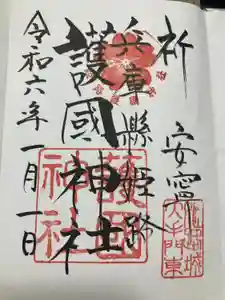 祈 安寧
兵庫縣姫路
護國神社
令和六年一月一日
護國神社
姫路城
大手門東